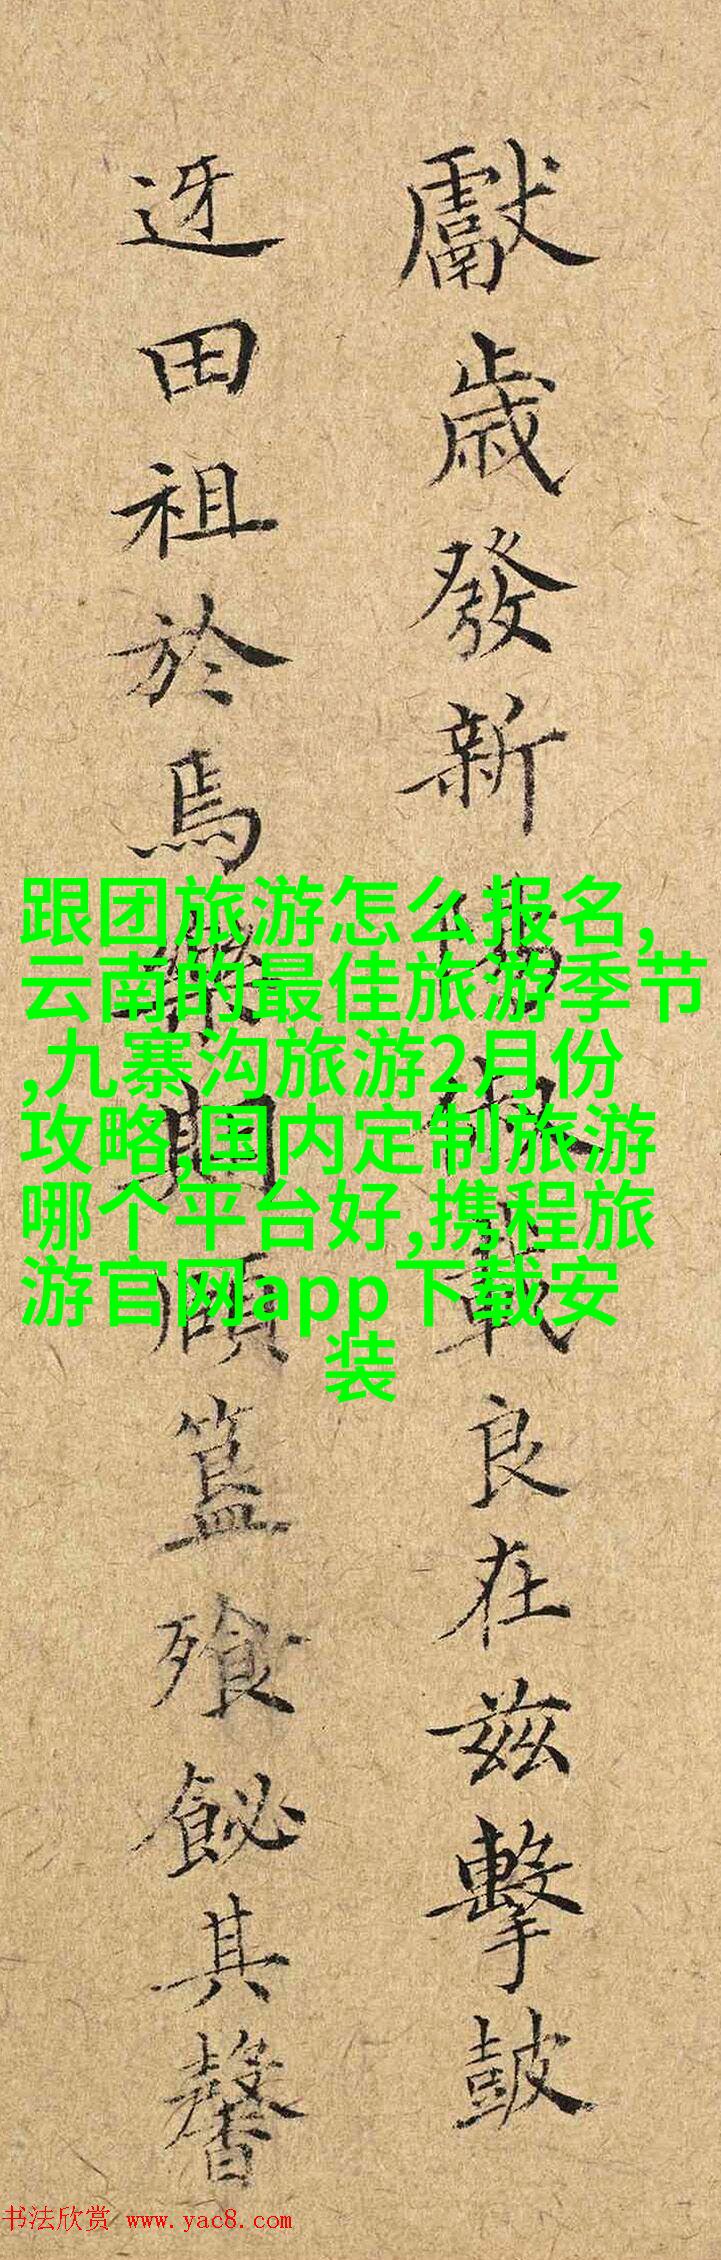 獻歲發新陽俶載良在兹擊鼓
迓田祖於焉樂期頤簋飱飶其馨
跟团旅游怎么报名,
云南的最佳旅游季节
,九寨沟旅游2月份
攻略,国内定制旅游
哪个平台好,携程旅
游官网app下载安
装
书法欣赏 www.yac8.com